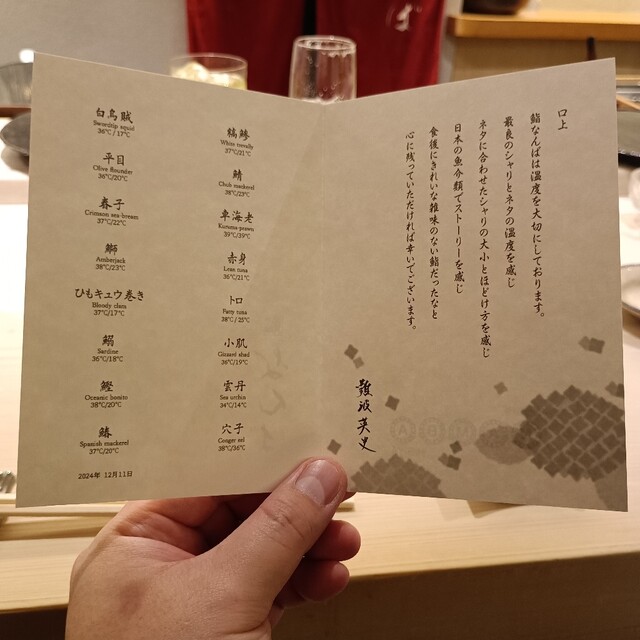 白烏賊
Swordtip squid
36℃/17℃
平目
Olive flounder
36℃/20℃
春子
Crimson sea-bream
37℃/22℃
鰤
Amberjack
38℃/23℃
ひもキュウ巻き
Bloody clam
37℃/17℃
鰯
Sardine
36℃/18℃
鰹
Oceanic bonito
38℃/20℃
鰆
Spanish mackerel
37℃/20℃
2024年 12月11日
縞鯵
White trevally
37℃/21℃
鯖
Chub mackerel
38℃/23℃
車海老
Kuruma-prawn
39℃/39℃
赤身
Lean tuna
36℃/21℃
トロ
Fatty tuna
38℃/25℃
小肌
Gizzard shad
36℃/19℃
雲丹
Sea urchin
34℃/14℃
穴子
Conger eel
38℃/36℃
口上
鮨なんばは温度を大切にしております。
最良のシャリとネタの温度を感じ
ネタに合わせたシャリの大小とほどけ方を感じ
日本の魚介類でストーリーを感じ
食後にきれいな雑味のない鮨だったなと
心に残っていただければ幸いでございます。
難波英史